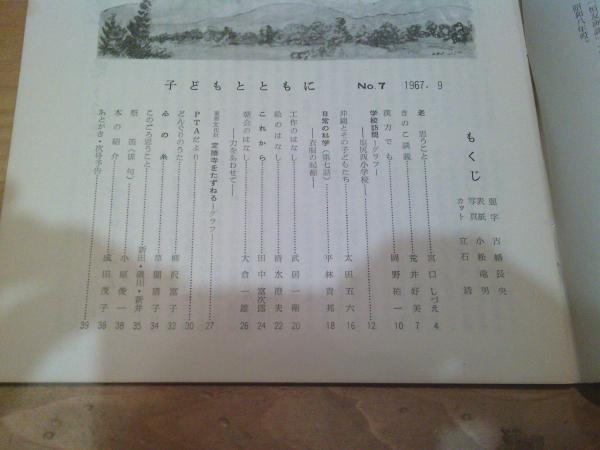 子どもとともに No.7 1967.9
もくじ
題字 古幡長央
表紙 小松竜男
写真
カット 立石
老 思うこと 宮口しづえ 4
きのこ談義 荒井好美 7
漢方でも 岡野祐一 10
学校訪問―グラフ― 12
―塩尻西小学校―
沖縄とその子どもたち 太田五六 16
日常の科学(第七話) 平林貴邦 18
―衣服の起源―
工作のはなし 武居一衛 20
絵のはなし 清水澄夫 22
これから 田中富次郎 24
朝会のはなし 大倉一雄 26
―力をあわせて―
重要文化財 定勝寺をたずねる―グラフ― 27
PTAだより 30
どんぐりのうた 柳沢富子 32
ゐの糸 草間清子 34
このごろ思うこと 新田・磯川・新井 35
祭笛(俳句) 小原俊一 38
本の紹介 成田茂子 36
あとがき・次号予告 39
昭和八年